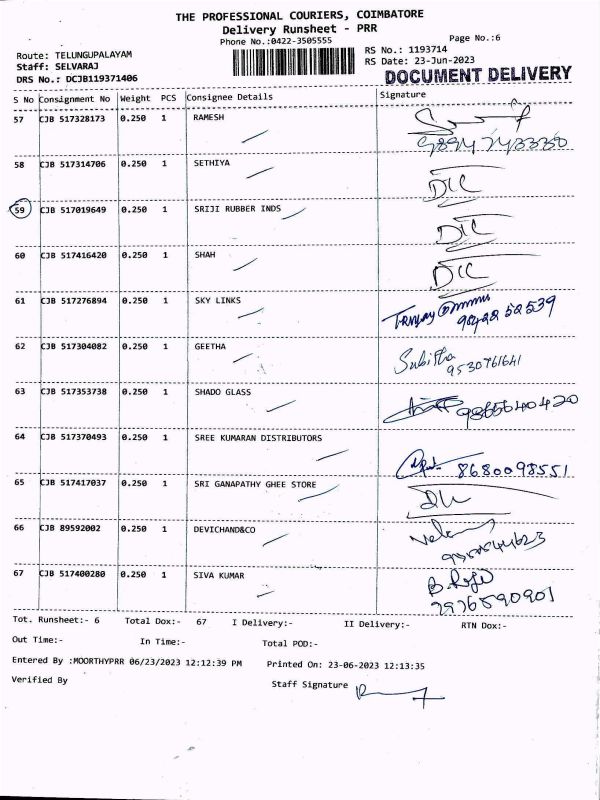 THE PROFESSIONAL COURIERS, COIMBATORE
Delivery Runsheet - PRR
Phone No.:0422-3505555
Page No.:6
Route: TELUNGUPALAYAM
RS No.: 1193714
Staff: SELVARAJ
RS Date: 23-Jun-2023
DRS No.: DCJB119371406
DOCUMENT DELIVERY
S No Consignment No Weight PCS Consignee Details Signature
57 CJB 517328173 0.250 1 RAMESH
58 CJB 517314706 0.250 1 SETHIYA
DLC
59 CJB 517019649 0.250 1 SRIJI RUBBER INDS
DLC
60 CJB 517416420 0.250 1 SHAH
DLC
61 CJB 517276894 0.250 1 SKY LINKS
62 CJB 517304082 0.250 1 GEETHA
Subitha
9530761641
63 CJB 517353738 0.250 1 SHADO GLASS
9865640420
64 CJB 517370493 0.250 1 SREE KUMARAN DISTRIBUTORS
8680098551
65 CJB 517417037 0.250 1 SRI GANAPATHY GHEE STORE
66 CJB 89592002 0.250 1 DEVICHAND&CO
67 CJB 517400280 0.250 1 SIVA KUMAR
7976590901
Tot. Runsheet:- 6 Total Dox:- 67 I Delivery:- II Delivery:- RTN Dox:-
Out Time:- In Time:- Total POD:-
Entered By :MOORTHYPRR 06/23/2023 12:12:39 PM Printed On: 23-06-2023 12:13:35
Verified By Staff Signature